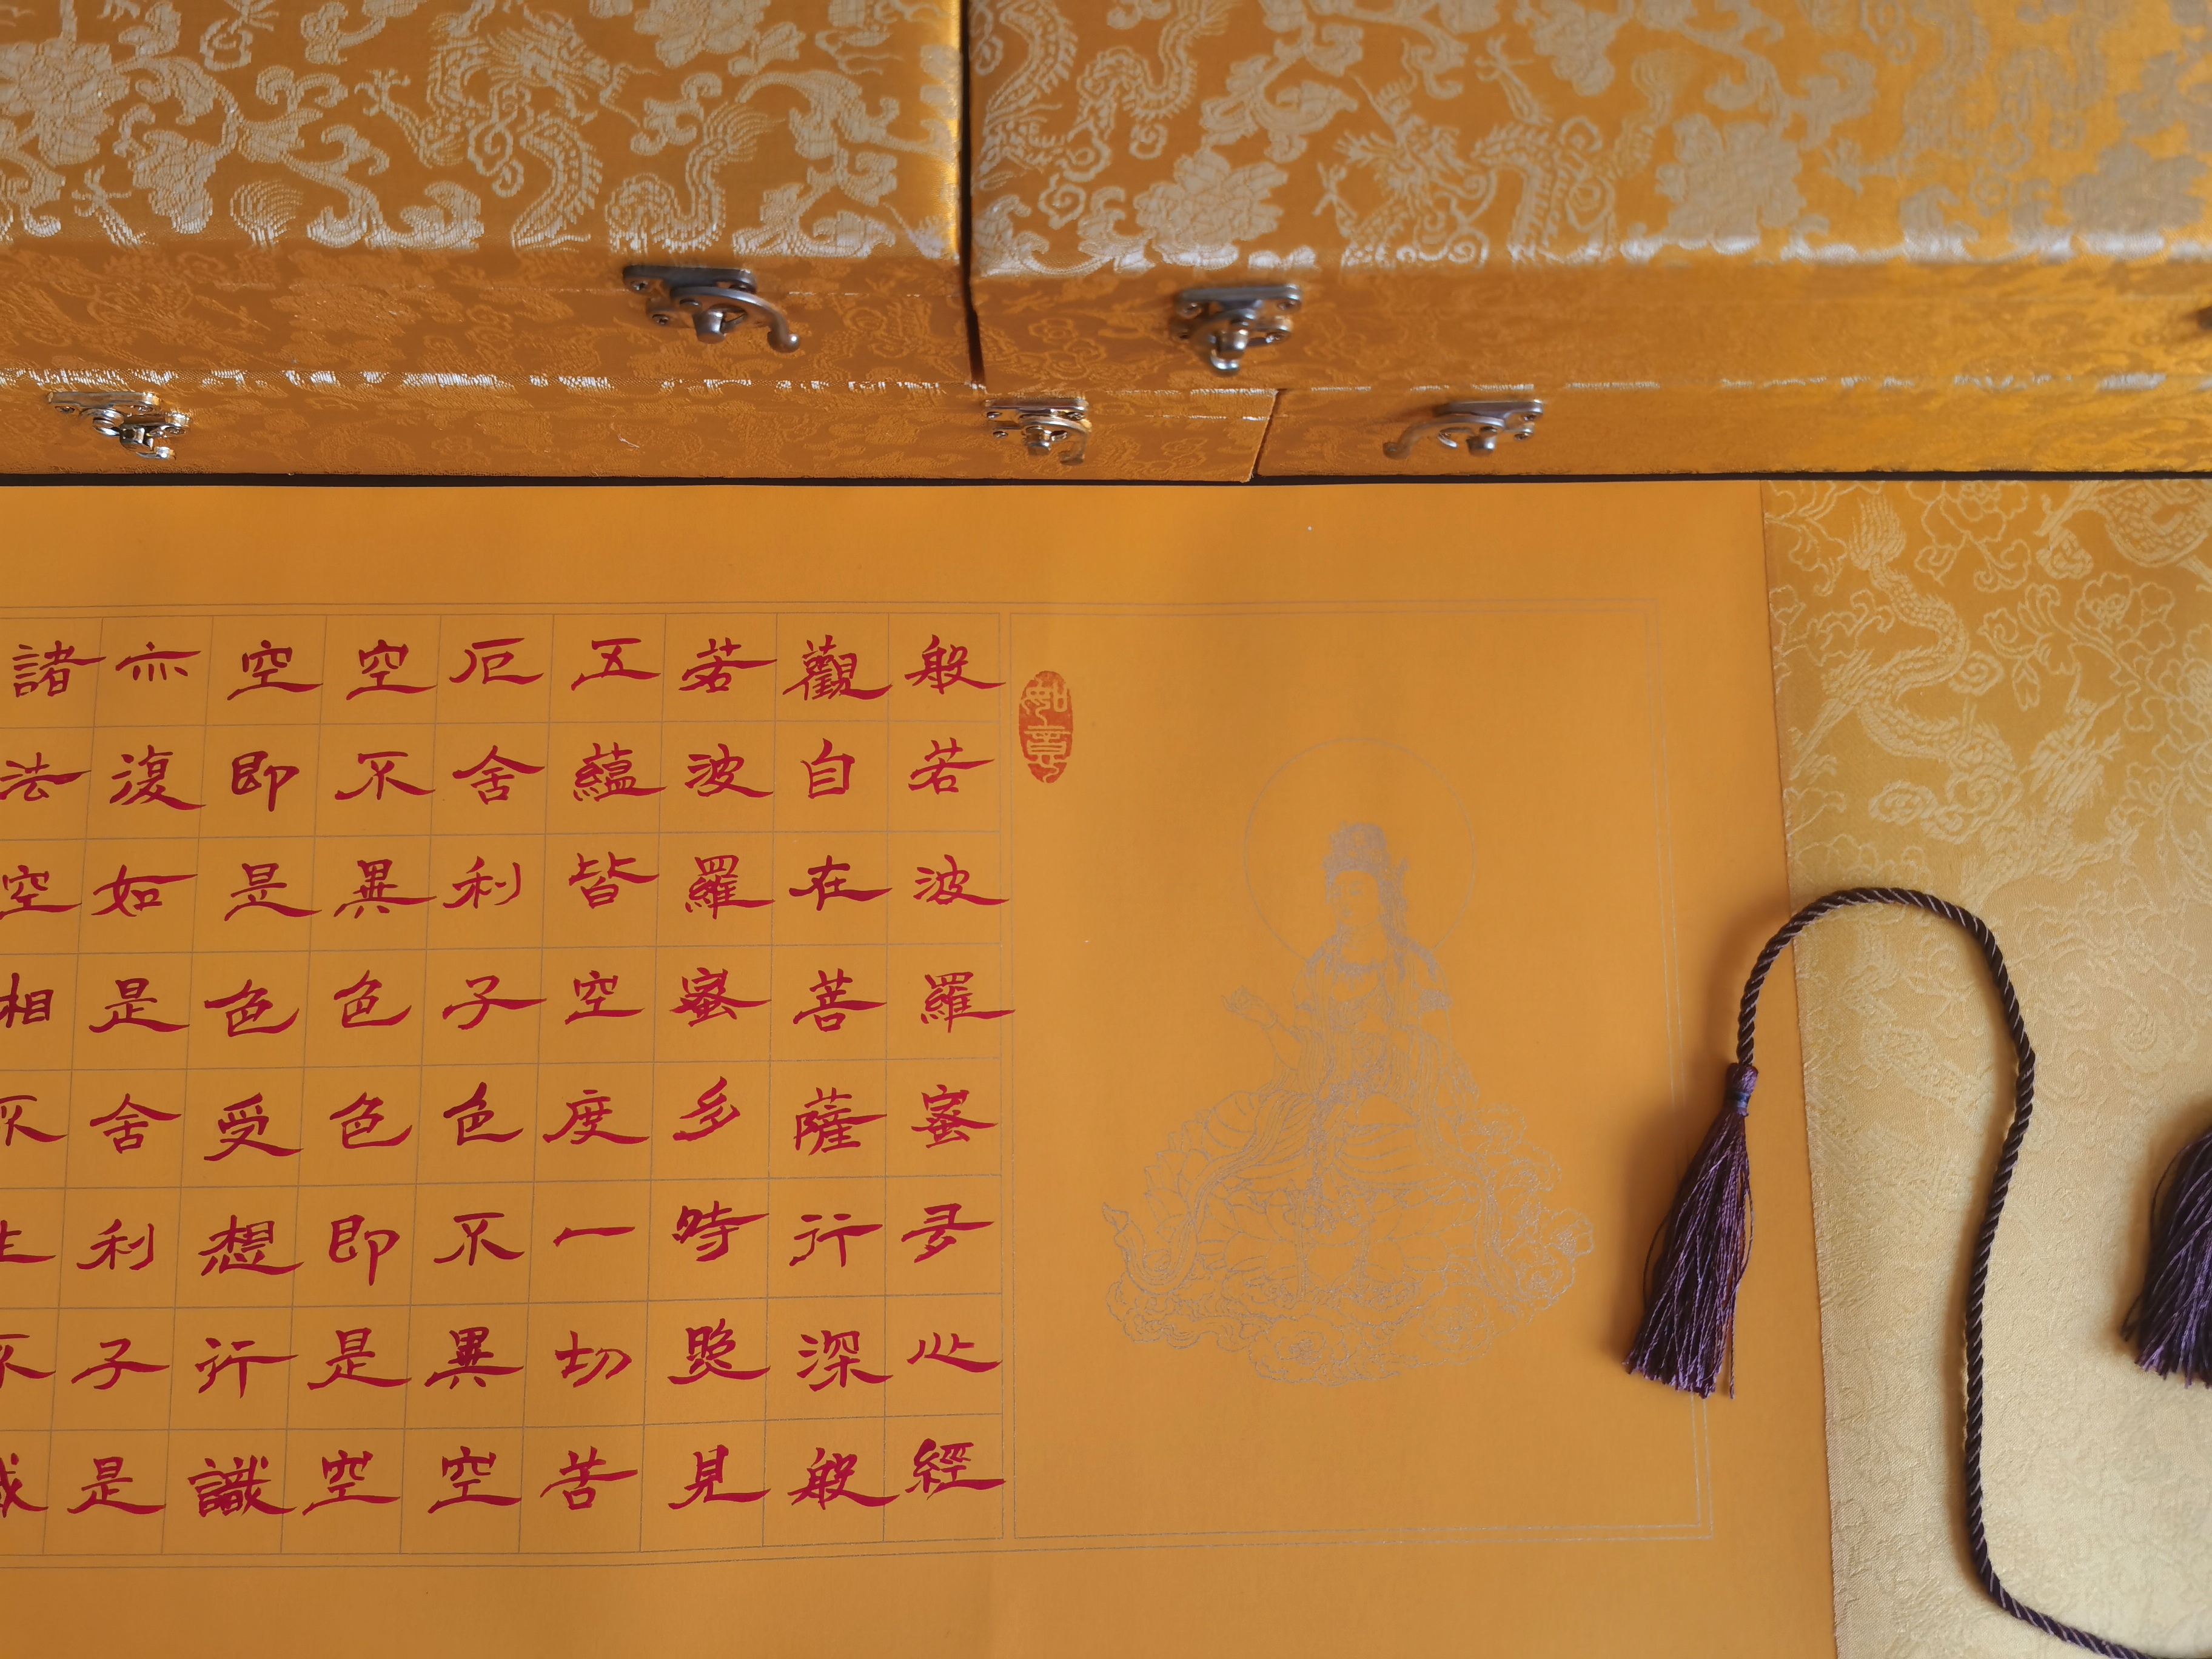 如意
般若波羅蜜多心經
觀自在菩薩行深般
若波羅蜜多時照見
五蘊皆空度一切苦
厄舍利子色不異空
空不異色色即是空
空即是色受想行識
亦復如是舍利子是
諸法空相不生不滅